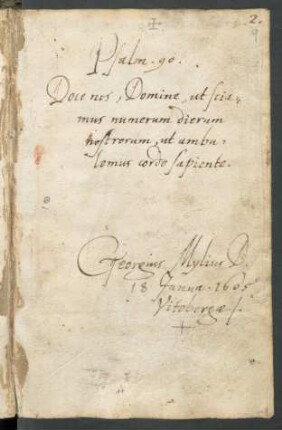 2.
Psalm. 90.
Doce nos, Domine, ut scia,
mus numerum dierum
nostrorum, ut ambu,
lemus corde sapiente.
Georgius Mylius D.
18 Janua. 1605
Vitobergæ